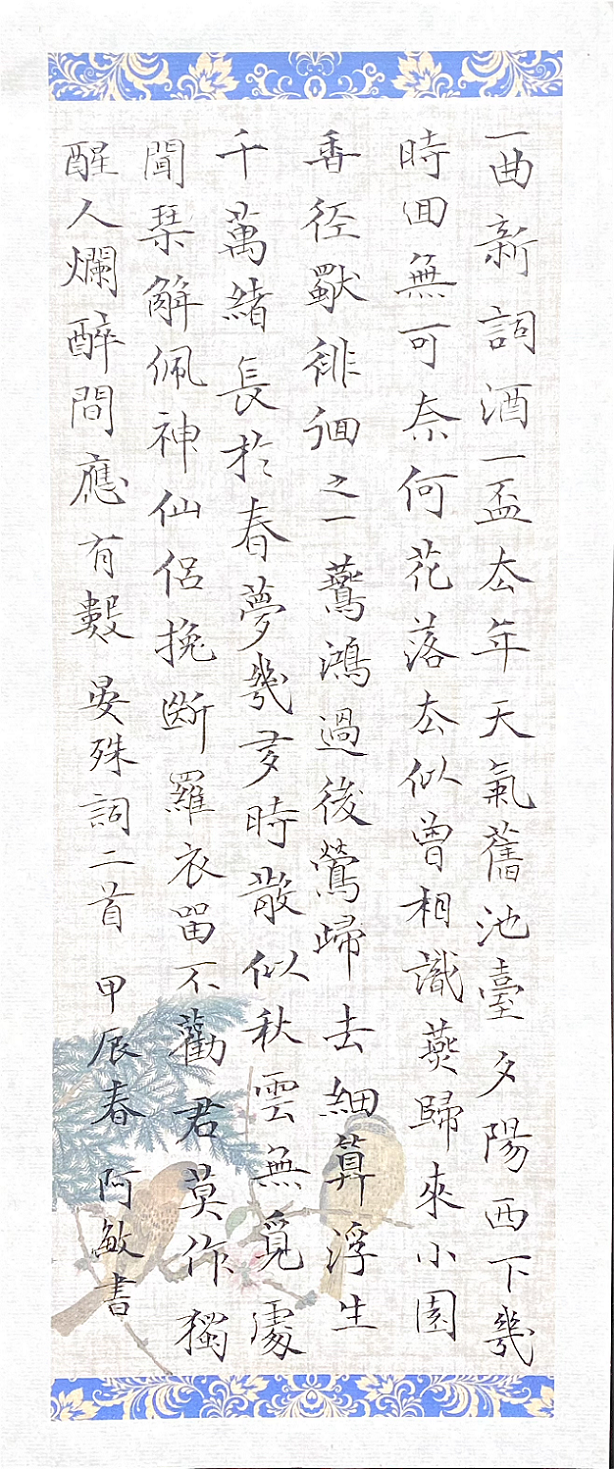 一曲新詞酒一盃去年天氣舊池臺夕陽西下幾
時回無可奈何花落去似曾相識燕歸來小園
香徑獸徘徊之一驚鴻過後鶯歸去細算浮生
千萬緒長於春夢幾多時散似秋雲無覓處
聞琴解佩神仙侶挽斷羅衣留不勸君莫作獨
醒人爛醉間應有數晏殊詞二首 甲辰春 阿敏書